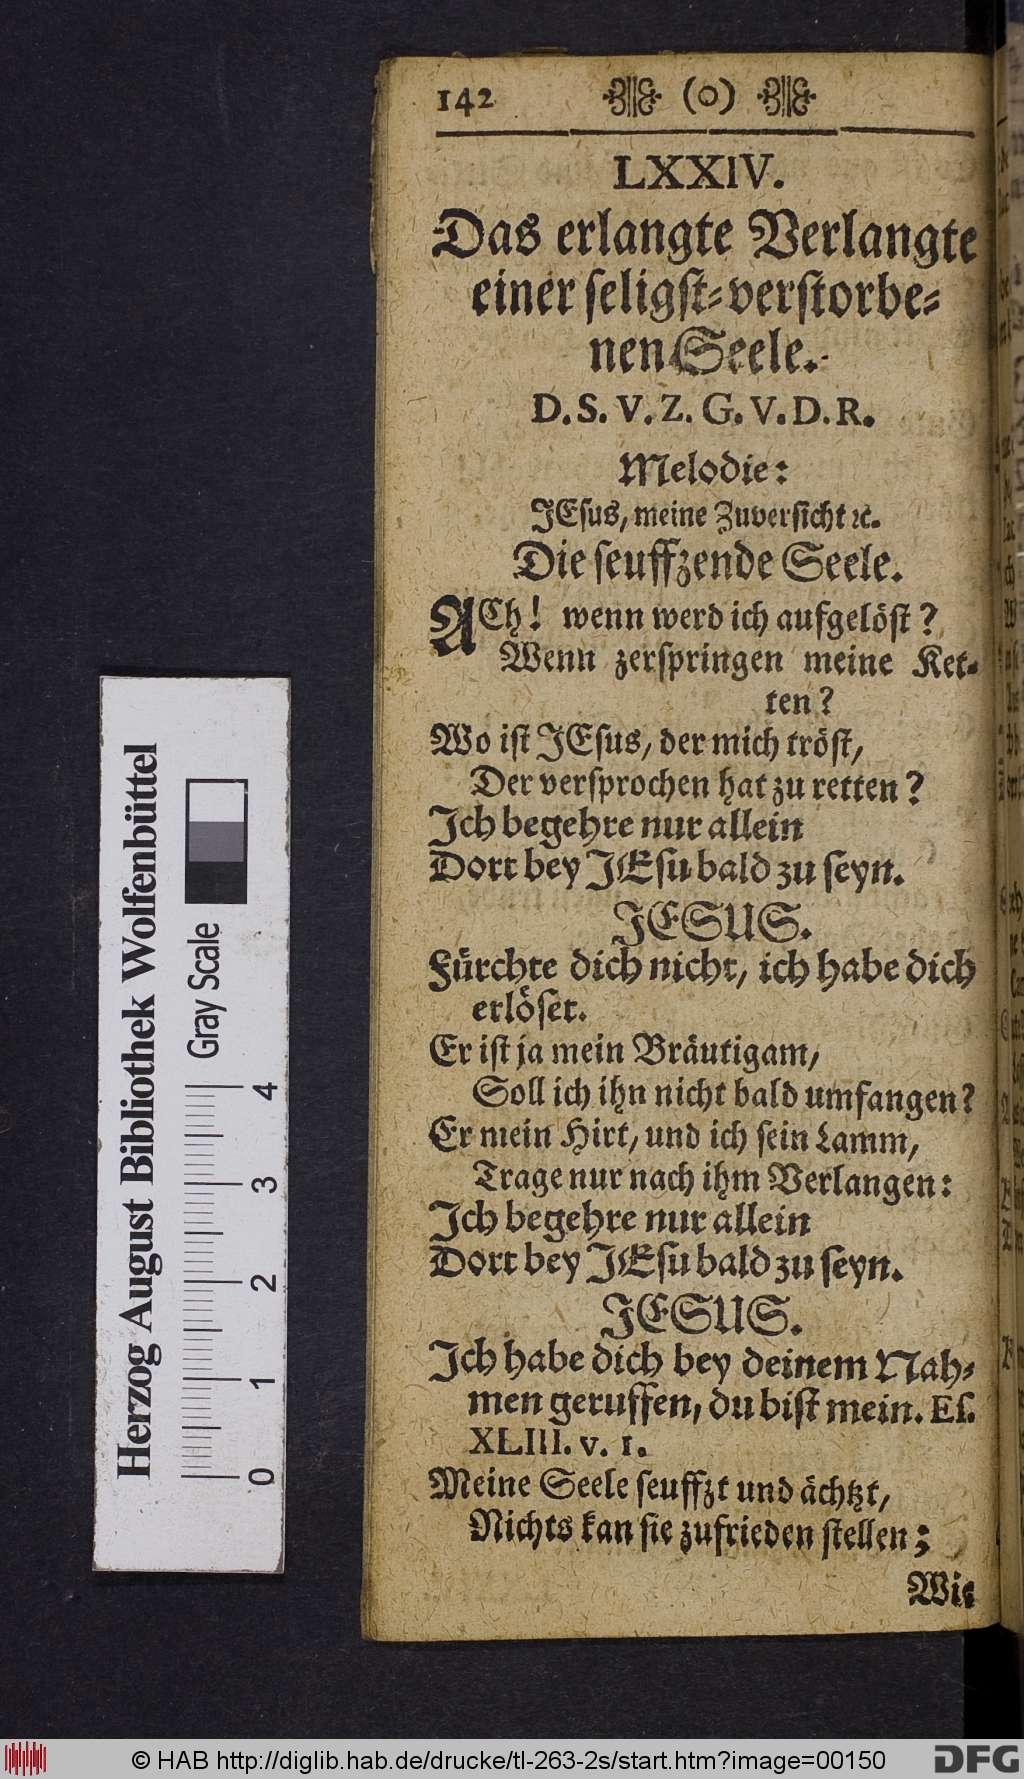 142 (o)
LXXIV.
Das erlangte Verlangte
einer seligst-verstorbe-
nen Seele.
D. S. V. Z. G. V. D. R.
Melodie:
JEsus, meine Zuversicht ꝛc.
Die seuffzende Seele.
ACh! wenn werd ich aufgelöst?
Wenn zerspringen meine Ket-
ten?
Wo ist JEsus, der mich tröst,
Der versprochen hat zu retten?
Ich begehre nur allein
Dort bey JEsu bald zu seyn.
JESUS.
Fürchte dich nicht, ich habe dich
erlöset.
Er ist ja mein Bräutigam,
Soll ich ihn nicht bald umfangen?
Er mein Hirt, und ich sein Lamm,
Trage nur nach ihm Verlangen:
Ich begehre nur allein
Dort bey JEsu bald zu seyn.
JESUS.
Ich habe dich bey deinem Nah-
men geruffen, du bist mein. Es.
XLIII. v. 1.
Meine Seele seuffzt und ächtzt,
Nichts kan sie zufrieden stellen;
Wie
Herzog August Bibliothek Wolfenbüttel
Gray Scale
0 1 2 3 4
© HAB http://diglib.hab.de/drucke/tl-263-2s/start.htm?image=00150
DFG